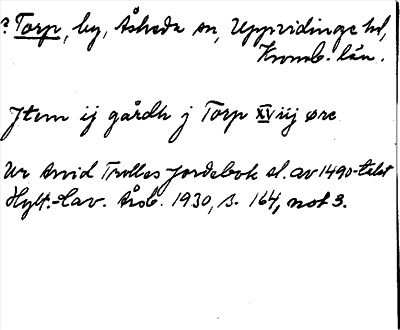 ? Torp, by, Åsheda sn, Uppvidinge hd,
Kronob. län.
Item ij gårdh j Torp xviij øre
Ur Arvid Trolles jordebok sl. av 1490-talet
Hylt.-Cav. Årsb. 1930, s. 164, not 3.